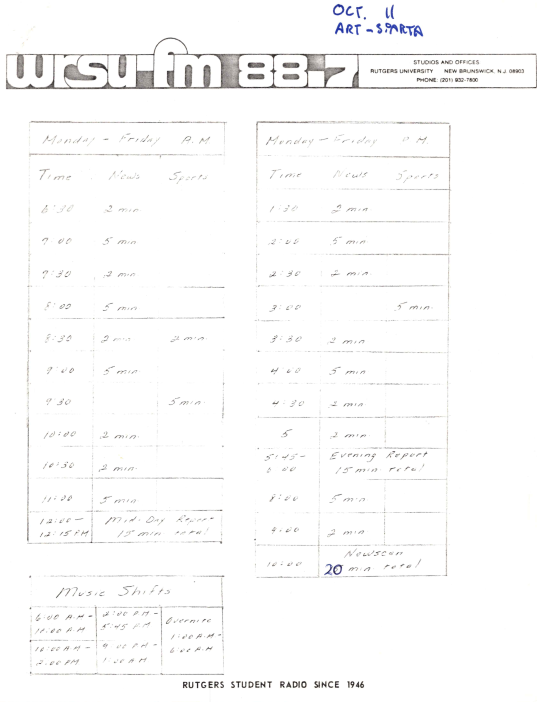 OCT. 11
ART - SPARTA
wrsu-fm 88.7
STUDIOS AND OFFICES
RUTGERS UNIVERSITY NEW BRUNSWICK, N.J. 08903
PHONE: (201) 932-7800
Monday - Friday A.M.
Time News Sports
6:30 2 min
7:00 5 min
7:30 2 min
8:00 5 min
8:30 2 min 2 min
9:00 5 min
9:30 5 min
10:00 2 min
10:30 2 min
11:00 5 min
12:00 - Mid-Day Report
12:15 PM 15 min total
Monday - Friday P.M.
Time News Sports
1:30 2 min
2:00 5 min
2:30 2 min
3:00 5 min
3:30 2 min
4:00 5 min
4:30 2 min
5 2 min
5:45 - Evening Report
6:00 15 min total
8:00 5 min
9:00 2 min
Newscan
10:00 20 min total
Music Shifts
6:00 A.M - 2:00 PM - Overnite
10:00 A.M 5:45 PM 1:00 A.M -
10:00 A.M - 9:00 PM - 6:00 A.M
2:00 PM 1:00 A.M
RUTGERS STUDENT RADIO SINCE 1946